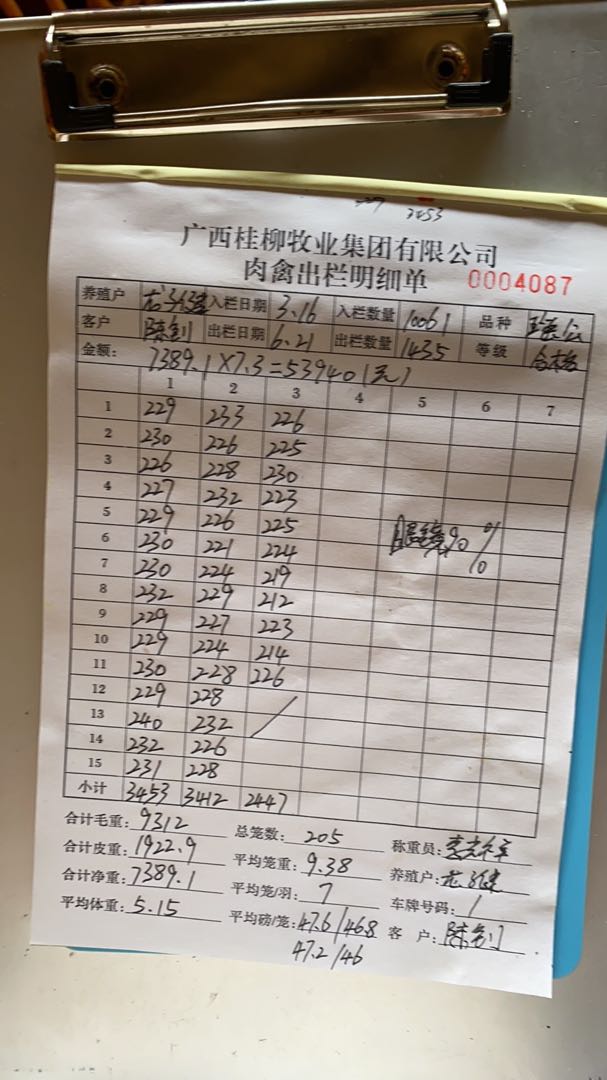 3453
广西桂柳牧业集团有限公司
肉禽出栏明细单 0004087
养殖户 入栏日期 3.16 入栏数量 10061 品种
客户 陈剑 出栏日期 6.21 出栏数量 1435 等级 合格
金额: 7389.1×7.3=53940(元)
1 2 3 4 5 6 7
1 229 233 226
2 230 226 225
3 226 228 230
4 227 232 223
5 229 226 225
6 230 221 224 90%
7 230 224 219 %
8 232 229 212
9 229 227 223
10 229 224 214
11 230 228 226
12 229 228
13 240 232 /
14 232 226
15 231 228
小计 3453 3412 2447
合计毛重: 9312 总笼数: 205 称重员:
合计皮重: 1922.9 平均笼重: 9.38 养殖户:
合计净重: 7389.1 平均笼/羽: 7 车牌号码: /
平均体重: 5.15 平均磅/笼: 47.6/46.8 客 户: 陈剑
47.2/46